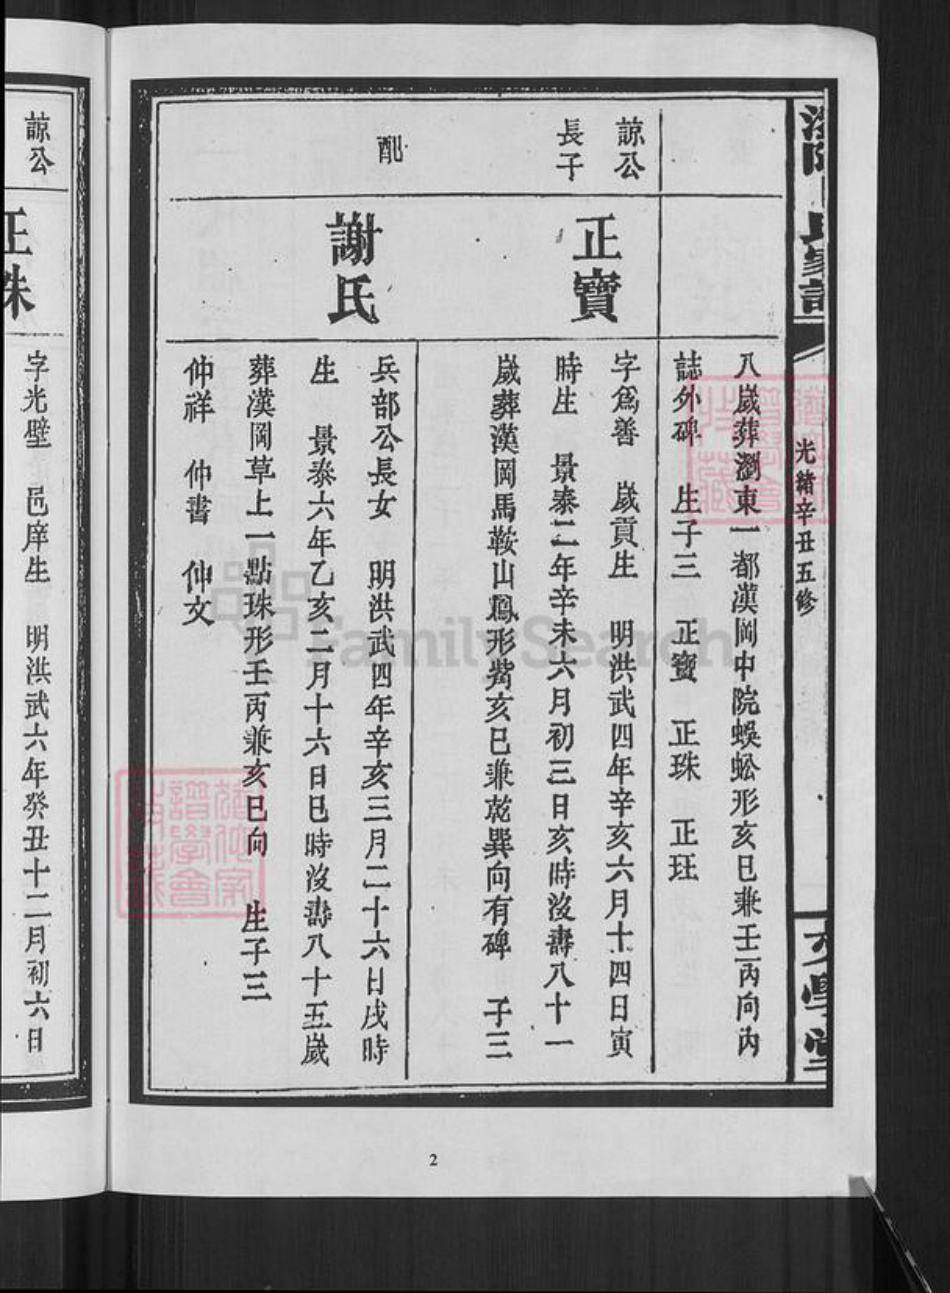 光緒辛丑五修
八歲葬瀏東一都漢岡中院蜈蚣形亥巳兼壬丙向內
誌外碑 生子三 正寶 正珠 正玨
諒公
長子
正寶
字為善 歲貢生 明洪武四年辛亥六月十四日寅
時生 景泰二年辛未六月初三日亥時沒壽八十一
歲葬漢岡馬鞍山鳳形觜亥巳兼乾巽向有碑 子三
配
謝氏
兵部公長女 明洪武四年辛亥三月二十六日戌時
生 景泰六年乙亥二月十六日巳時沒壽八十五歲
葬漢岡草上一點珠形壬丙兼亥巳向 生子三
仲祥 仲書 仲文
諒公
正珠
字光壁 邑庠生 明洪武六年癸丑十二月初六日
2
FamilySearch